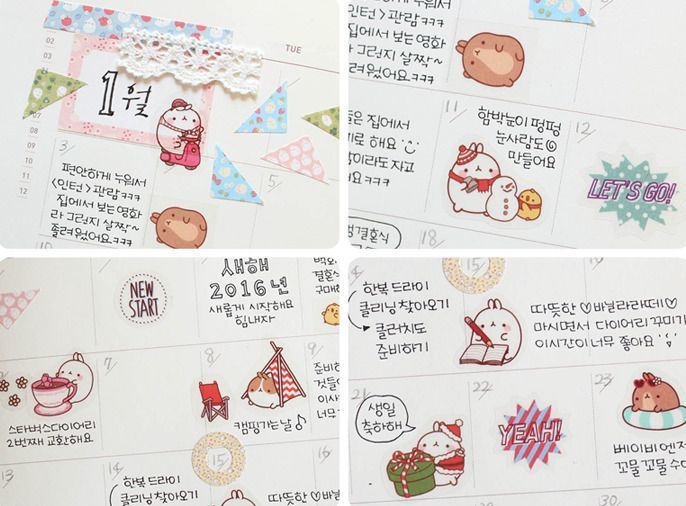 TUE
1월
02
07
08
09
10
11
12
3
5
편안하게 누워서
<인턴> 관람 ㅋㅋㅋ
집에서 보는 영화
라 그런지 살짝~
졸려웠어요 ㅋㅋㅋ
10
<인턴> 관람 ㅋㅋㅋ
집에서 보는 영화
라 그런지 살짝~
졸려웠어요 ㅋㅋㅋ
11
함박눈이 펑펑
눈사람도
만들어요
12
LET'S GO!
은 집에서
18
결혼식
NEW
START
새해
2016년
새롭게 시작해요
힘내자
결혼식
7
8
9
스타벅스다이어리
2번째 교환해요
캠핑가는날♪
준비하
13
14
15
한복 드라이
클리닝 찾아오기
따뜻한♡바닐
한복 드라이
클리닝 찾아오기
클러치도
준비하기
15
따뜻한♡바닐라라떼♡
마시면서 다이어리 꾸미기
이시간이 너무 좋아요
21
생일
축하해
22
YEAH!
23
베이비엔저
꼬물꼬물 수
30